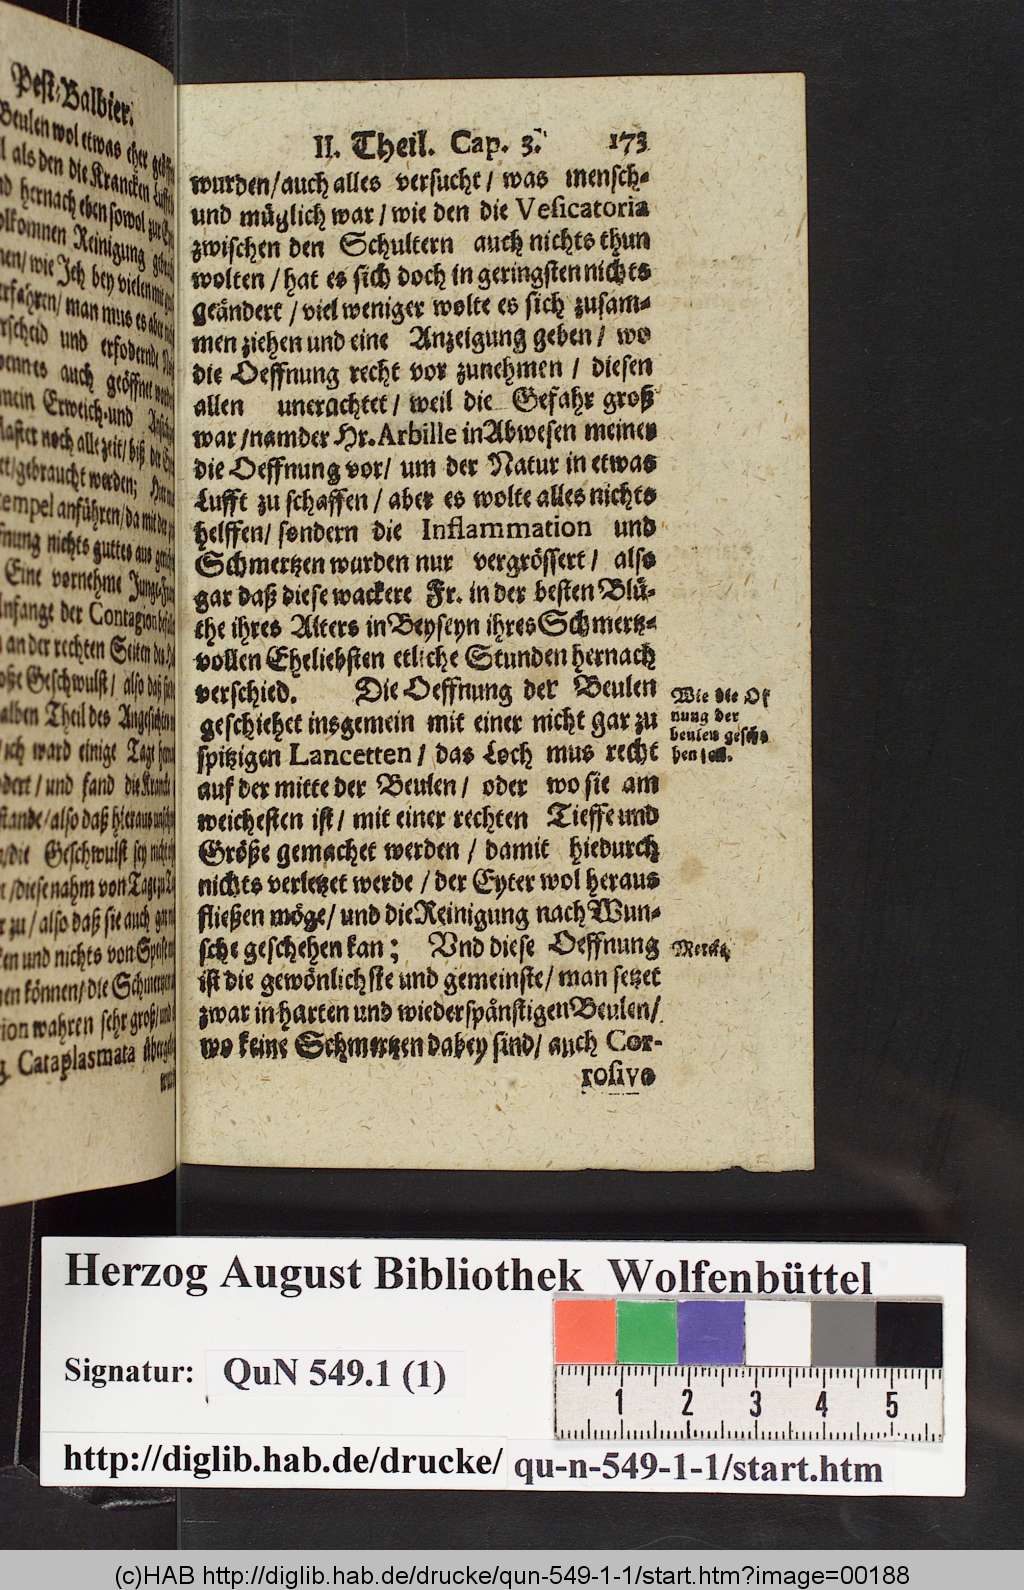 Pest-Balbier.
Beulen wol etwas eher
als den die Krancken
hernach eben sowol zur
Reinigung
wie Jch bey vielen mit
erfahren/ man mus es aber
und erfodernde
auch geöffnet
Erweich-und
noch alle zeit/ biß die
gebraucht werden;
anführen/ da mit der
nichts guttes aus
Eine vornehme Junge-
Anfange der Contagion
an der rechten Seiten des
Geschwulst/ also daß
Theil des Angesichts
ich ward einige Tage
und fand die
also daß hieraus
die Geschwulst sey
diese nahm von Tage zu
zu/ also daß sie auch
und nichts von
können/ die Schmertzen
wahren sehr groß/ und
Cataplasmata
II. Theil. Cap. 3. 173
wurden/ auch alles versucht/ was mensch-
und müglich war/ wie den die Vesicatoria
zwischen den Schultern auch nichts thun
wolten/ hat es sich doch in geringsten nichts
geändert/ viel weniger wolte es sich zusam-
men ziehen und eine Anzeigung geben/ wo
die Oeffnung recht vor zunehmen/ diesen
allen unerachtet/ weil die Gefahr groß
war/ nam der Hr. Arbille in Abwesen meines
die Oeffnung vor/ um der Natur in etwas
Lufft zu schaffen/ aber es wolte alles nichts
helffen/ sondern die Inflammation und
Schmertzen wurden nur vergrössert/ also
gar daß diese wackere Fr. in der besten Blü-
the ihres Alters in Beyseyn ihres Schmertz-
vollen Eheliebsten etliche Stunden hernach
verschied. Die Oeffnung der Beulen
geschiehet insgemein mit einer nicht gar zu
spitzigen Lancetten/ das Loch mus recht
auf der mitte der Beulen/ oder wo sie am
weichesten ist/ mit einer rechten Tieffe und
Größe gemachet werden/ damit hiedurch
nichts verletzet werde/ der Eyter wol heraus
fließen möge/ und die Reinigung nach Wun-
sche geschehen kan; Vnd diese Oeffnung
ist die gewönlichste und gemeinste/ man setzet
zwar in harten und wiederspänstigen Beulen/
wo keine Schmertzen dabey sind/ auch Cor-
rosive
Wie die Of
nung der
beulen gesche
hen soll.
Mercke
Herzog August Bibliothek Wolfenbüttel
Signatur: QuN 549.1 (1)
1 2 3 4 5
http://diglib.hab.de/drucke/ qu-n-549-1-1/start.htm
(c)HAB http://diglib.hab.de/drucke/qun-549-1-1/start.htm?image=00188